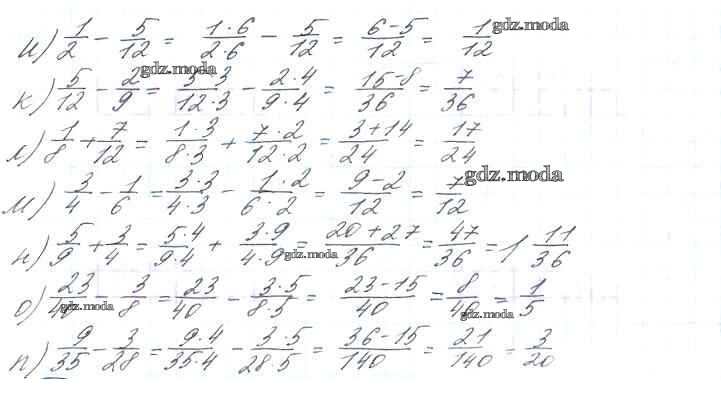 и) 1/2 − 5/12 = 1·6/2·6 − 5/12 = 6−5/12 = 1/12 gdz.moda
к) 5/12 − 2/9 = 5·3/12·3 − 2·4/9·4 = 15−8/36 = 7/36 gdz.moda
л) 1/8 + 7/12 = 1·3/8·3 + 7·2/12·2 = 3+14/24 = 17/24
м) 3/4 − 1/6 = 3·3/4·3 − 1·2/6·2 = 9−2/12 = 7/12 gdz.moda
н) 5/9 + 3/4 = 5·4/9·4 + 3·9/4·9 = 20+27/36 = 47/36 = 1 11/36 gdz.moda
о) 23/40 − 3/8 = 23/40 − 3·5/8·5 = 23−15/40 = 8/40 = 1/5 gdz.moda gdz.moda
п) 9/35 − 3/28 = 9·4/35·4 − 3·5/28·5 = 36−15/140 = 21/140 = 3/20